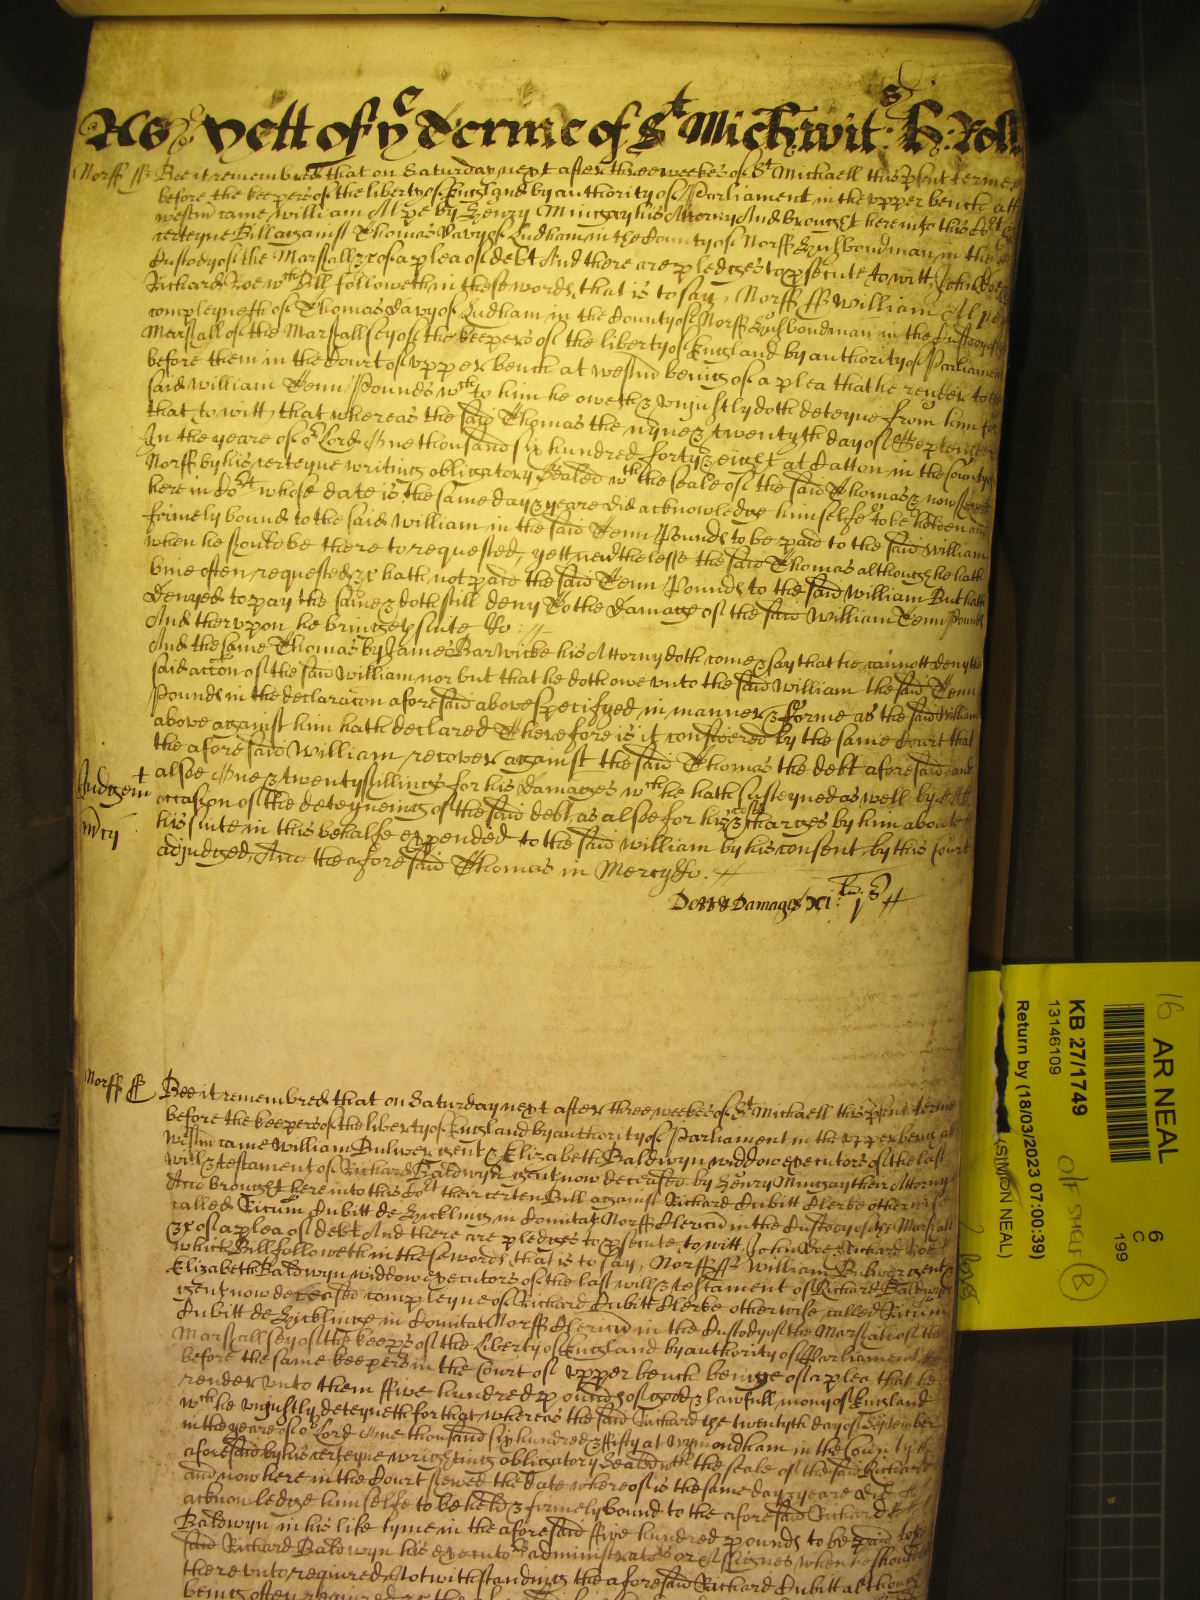 As yett of ye Terme of St Mich: wit: h: Roll
Norff ss Bee it remembred that on Saturday next after three weekes of St Michaell this psent terme
before the keepers of the liberty of England by authority of Parliament in the vpper bench att
westm came william Alpe by Henry Mingay his Attorny And brought here into this Cort
certeyne Bill against Thomas Davy of Ludham in the County of Norff Husbondman in the
Custody of the Marshall &c of a plea of debt And there are pledges to psecute to witt, John Doe
Richard Roe wch Bill followeth in these words, that is to say, Norff ss William Alpe
compleyneth of Thomas Davy of Ludham in the County of Norff Husbondman in the Custody of
Marshall of the Marshallsey of the keepers of the liberty of England by authority of Parliament
before them in the Court of vpper bench at westm being of a plea that he render to the
said william Tenn Pounds wch to him he oweth & vniustly doth deteyne from him for
that, to witt, that whereas the said Thomas the nyne & twentyth day of September
In the yeare of or Lord One thousand six hundred forty & eight at Catton in the County
Norff by his certeyne writing obligatory sealed wth the seale of the said Thomas & now shewed
here in Cort whose date is the same day & yeare did acknowledge himselfe to be holden and
firmely bound to the said William in the said Tenn Pounds to be paid to the said William
when he should be there to requested, yett neverthelesse the said Thomas although he hath
bine often requested &c hath not paid the said Tenn Pounds to the said William But hath
denyed to pay the same & doth still deny To the damage of the said William Tenn Pounds
And therevpon he bringeth suite &c
And the same Thomas by James Barwicke his Attorny doth come & say that he cannott deny the
said accon of the said William nor but that he doth owe vnto the said William the said Tenn
Pounds in the declaracon aforesaid above specifyed in manner & forme as the said William
above against him hath declared Therefore is it considered by the same Court that
the aforesaid William recover against the said Thomas the debt aforesaid and
Judgemt alsoe One & twenty shillings for his damages wch he hath susteyned as well by
occasion of the deteyneing of the said debt, as alsoe for his costs & charges by him about
mcy his suite in this behalfe expended to the said William by his consent by this Court
adjudged, And the aforesaid Thomas in Mercy &c.
Debt & Damages xi li. i s
Norff ss Bee it remembred that on Saturday next after three weekes of St Michaell this psent terme
before the keepers of the liberty of England by authority of Parliament in the vpper bench att
westm came William Bulwer gent & Elizabeth Baldwyn widdow executors of the last
will & testament of Richard Baldwyn gent now deceased by Henry Mingay their Attorny
And brought here into this Cort their certen Bill against Richard Cubitt Clerke otherwise
called Ricum Cubitt de Hickling in Comitat Norff Clericu in the Custody of the Marshall
&c of a plea of debt And there are pledges to psecute, to witt, John Doe & Richard Roe
which Bill followeth in these words, that is to say, Norff ss William Bulwer gent &
Elizabeth Baldwyn widdow executors of the last will & testament of Richard Baldwyn
gent now deceased compleyne of Richard Cubitt Clerke otherwise called Ricum
Cubitt de Hicklinge in Comitat Norff Clericu in the Custody of the Marshall of the
Marshallsey of the keeps of the Liberty of England by authority of Parliament
before the same keepers in the Court of vpper bench beinge of a plea that he
render vnto them ffive hundred pounds of good & lawfull mony of England
wch he vniustly deteyneth for that, whereas the said Richard the twentyth day of September
in the yeare of or Lord One thousand six hundred & fifty at wymondham in the County
aforesaid by his certeyne wrighting obligatory sealed wth the seale of the said Richard
and now here in the Court shewed the date whereof is the same day & yeare did
acknowledge himselfe to be held & firmely bound to the aforesaid Richard
Baldwyn in his life tyme in the aforesaid ffive hundred pounds to be paid to the
said Richard Baldwyn his executors administrators or Assignes when he should be
therevnto required Notwithstanding the aforesaid Richard Cubitt although
being often required &c the
16
AR NEAL
6
C
199
KB 27/1749
13146109
O/F SHELF B
Return by (18/03/2023 07:00:39)
(SIMON NEAL)